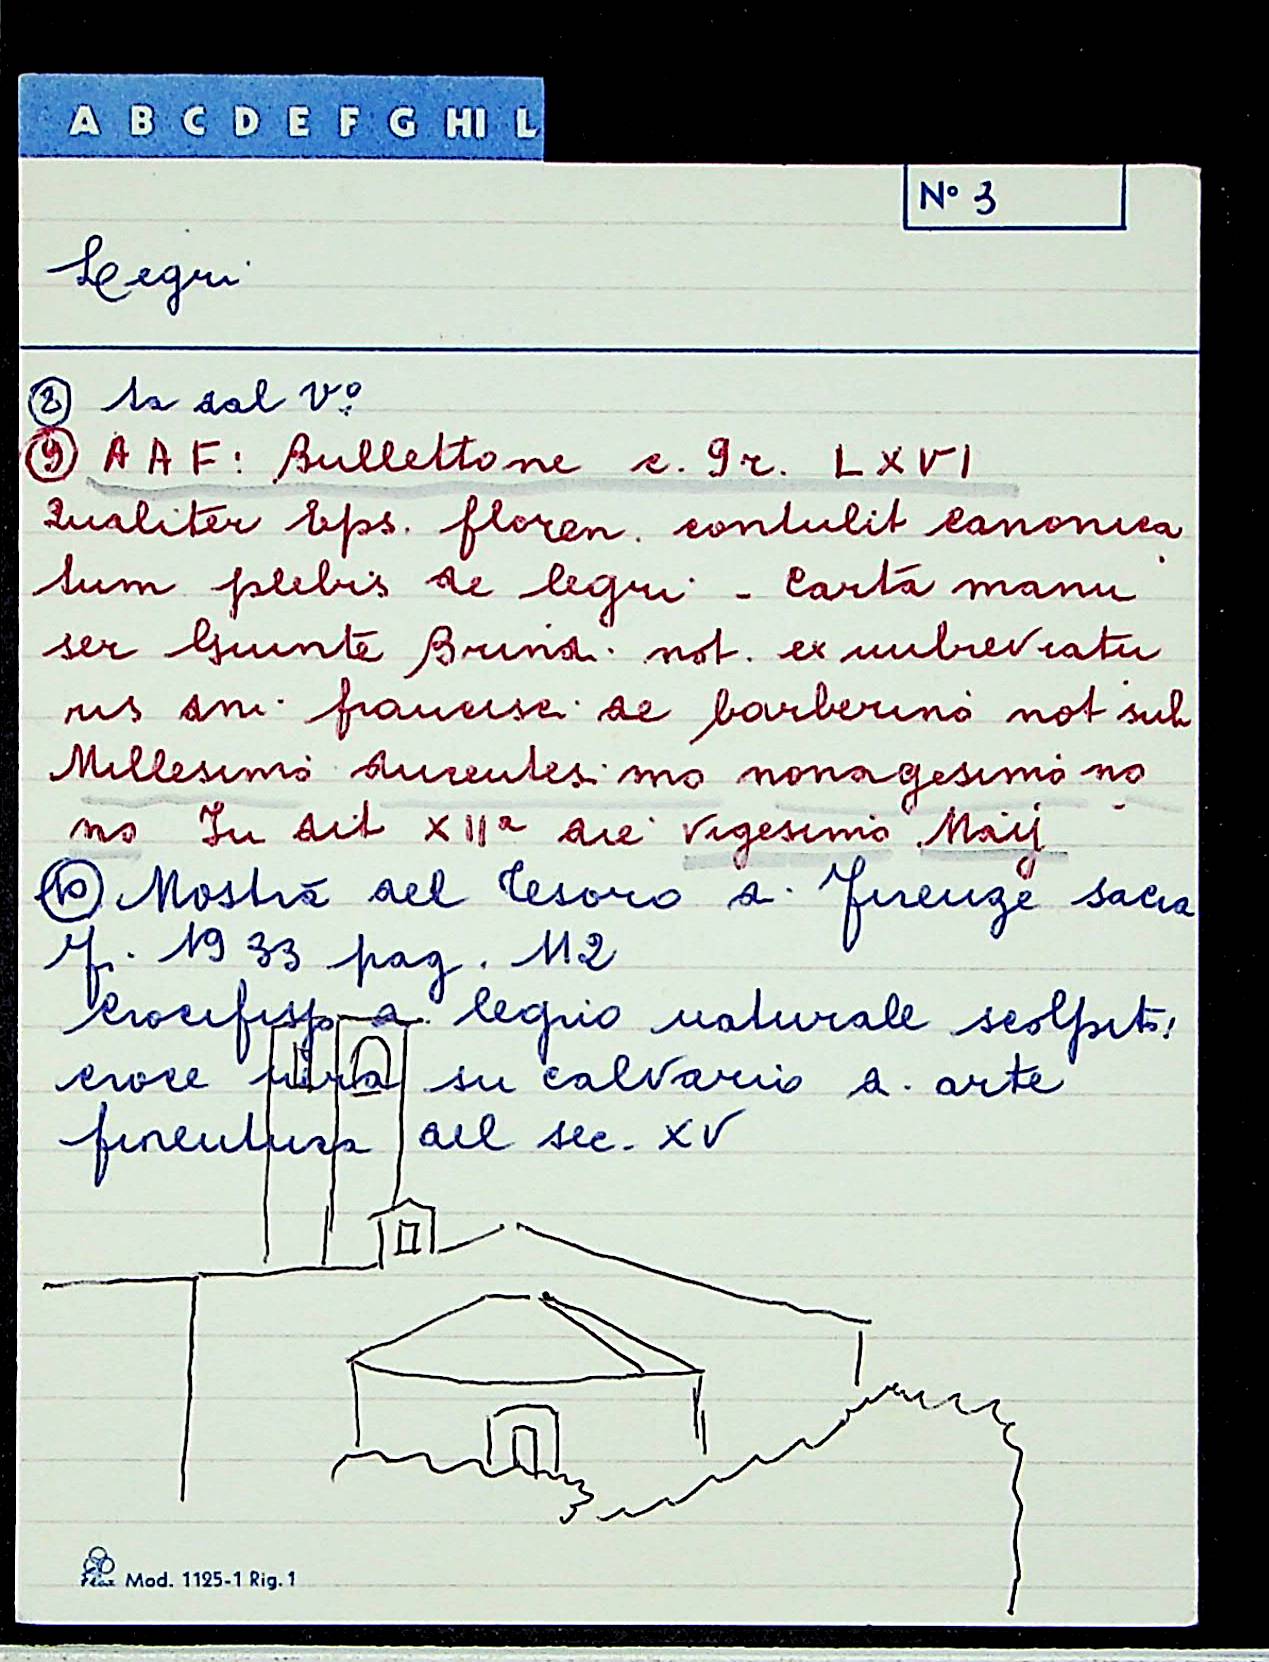 A B C D E F G HI L
N° 3
Legri
⑧ sa dal V°:
⑨ AAF: Bullettone c. 9r. LXVI
Qualiter Eps. floren. contulit canonica
tum plebis de legri - Carta manu
ser Giunte Brind. not. ex imbreviatu
ris dni. francisci de barberino not sub
Millesimo ducentesimo nonagesimo no
no Indit XIIa die vigesimo Maij
⑩ Mostra del Tesoro d. Firenze sacra
f. 1933 pag. 112
Crocifisso d. legno naturale scolpito:
croce viva su calvario d. arte
fiorentina del sec. XV
Mod. 1125-1 Rig. 1